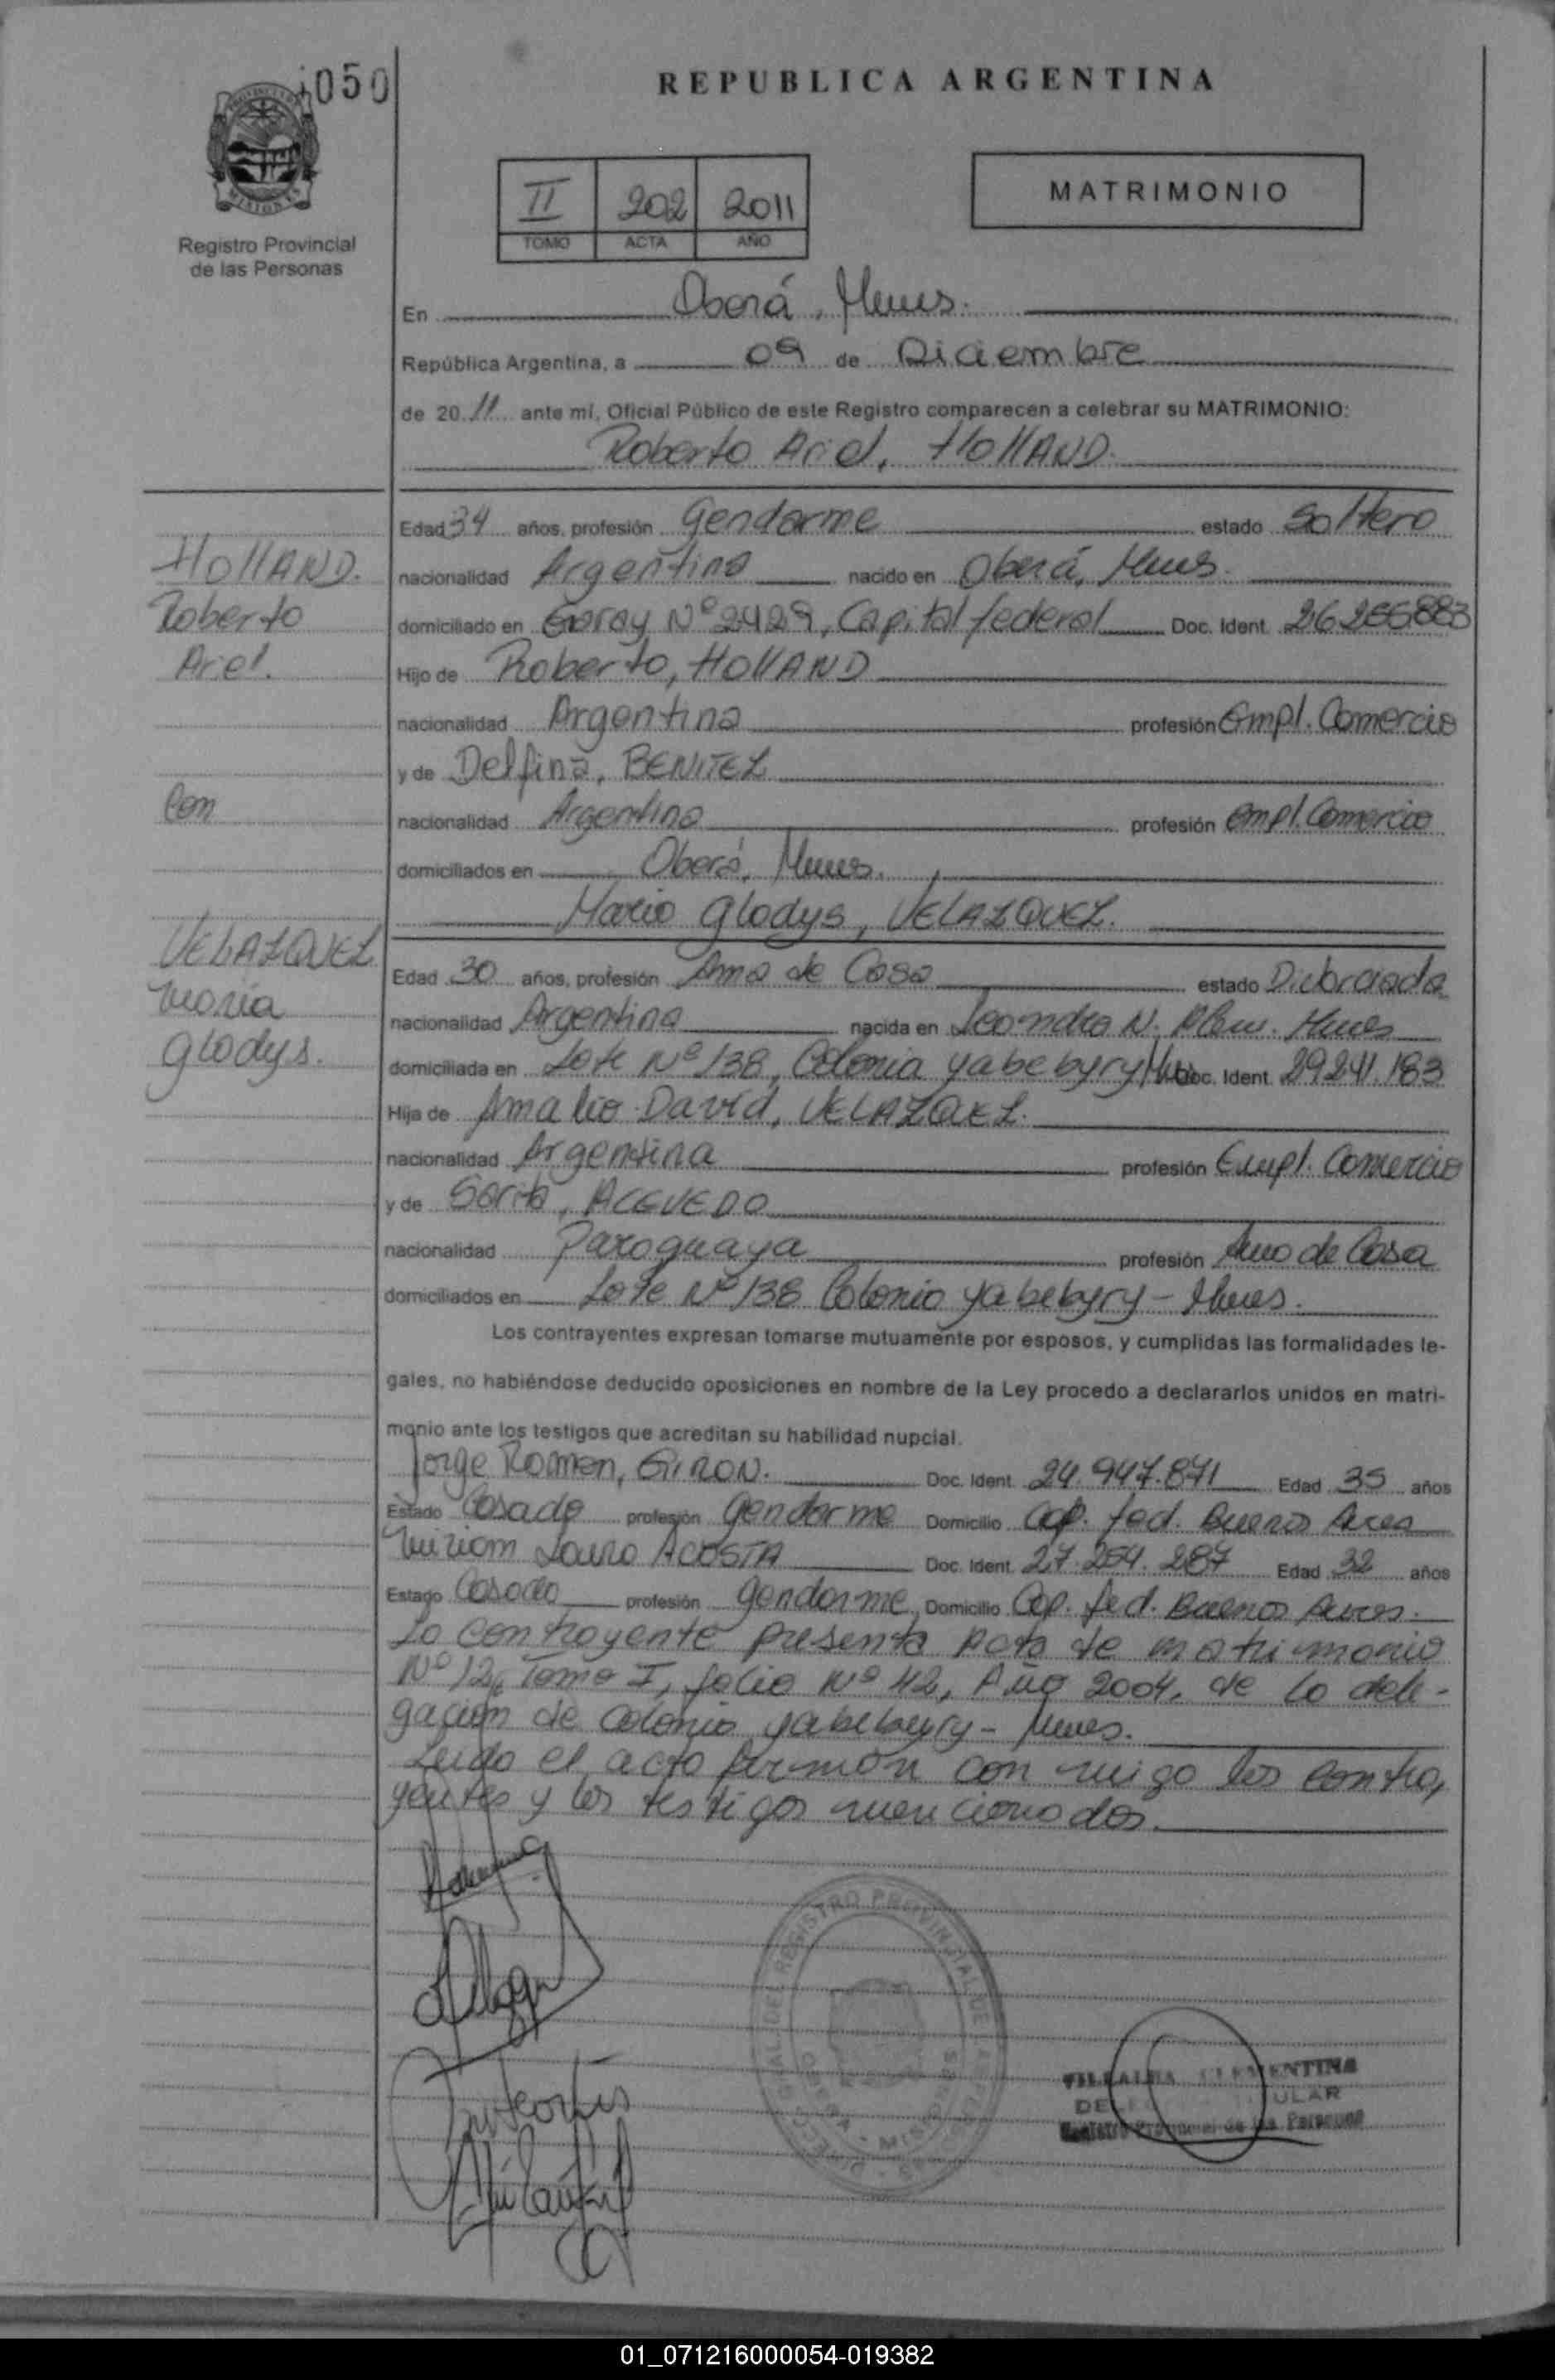 050
REPUBLICA ARGENTINA
PROVINCIA DE
MISIONES
Registro Provincial
de las Personas
II 202 2011
TOMO ACTA AÑO
MATRIMONIO
En Oberá, Mnes.
República Argentina, a 09 de Diciembre
de 2011 ante mí, Oficial Público de este Registro comparecen a celebrar su MATRIMONIO:
Roberto Ariel, HOLLAND.
HOLLAND.
Roberto
Ariel.
Con
VELAZQUEZ
María
Gladys.
Edad 34 años, profesión Gendarme estado Soltero
nacionalidad Argentina nacido en Oberá, Mnes.
domiciliado en Garay Nº 2429, Capital federal Doc. Ident. 26.255883
Hijo de Roberto, HOLLAND
nacionalidad Argentina profesión Empl. Comercio
y de Delfina, BENITEZ
nacionalidad Argentina profesión Empl. Comercio
domiciliados en Oberá, Mnes.
María Gladys, VELAZQUEZ.
Edad 30 años, profesión Ama de Casa estado Divorciada
nacionalidad Argentina nacida en Leandro N. Alem. Mnes
domiciliada en Lote Nº 138, Colonia yabebyry Mnes Doc. Ident. 29241.183
Hija de Amalio David, VELAZQUEZ.
nacionalidad Argentina profesión Empl. Comercio
y de Sarita, ACEVEDO
nacionalidad Paraguaya profesión Ama de Casa
domiciliados en Lote Nº 138 Colonia yabebyry - Mnes.
Los contrayentes expresan tomarse mutuamente por esposos, y cumplidas las formalidades le-
gales, no habiéndose deducido oposiciones en nombre de la Ley procedo a declararlos unidos en matri-
monio ante los testigos que acreditan su habilidad nupcial.
Jorge Ramon, GIRON. Doc. Ident. 24.947.871 Edad 35 años
Estado Casado profesión Gendarme Domicilio Cap. fed. Buenos Aires
Miriam Laura ACOSTA Doc. Ident. 27.254.287 Edad 32 años
Estado Casada profesión gendarme Domicilio Cap. fed. Buenos Aires.
La contrayente presenta Acta de matrimonio
Nº 12, Tomo I, folio Nº 42, Año 2004, de la dele-
gación de Colonia yabebyry - Mnes.
Leida el acta firman con migo los contra,
yentes y los testigos mencionados.
REGISTRO PROVINCIAL DE LAS
OBERA - MISIONES
VILLALBA CLEMENTINA
Registro Provincial de las Personas
01_071216000054-019382